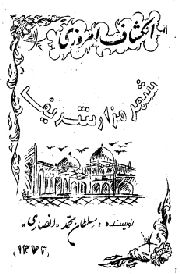 انکشاف امروزی
شهر مزار شریف
نویسنده: سلطان محمد «انصاری»
۱۳۷۲